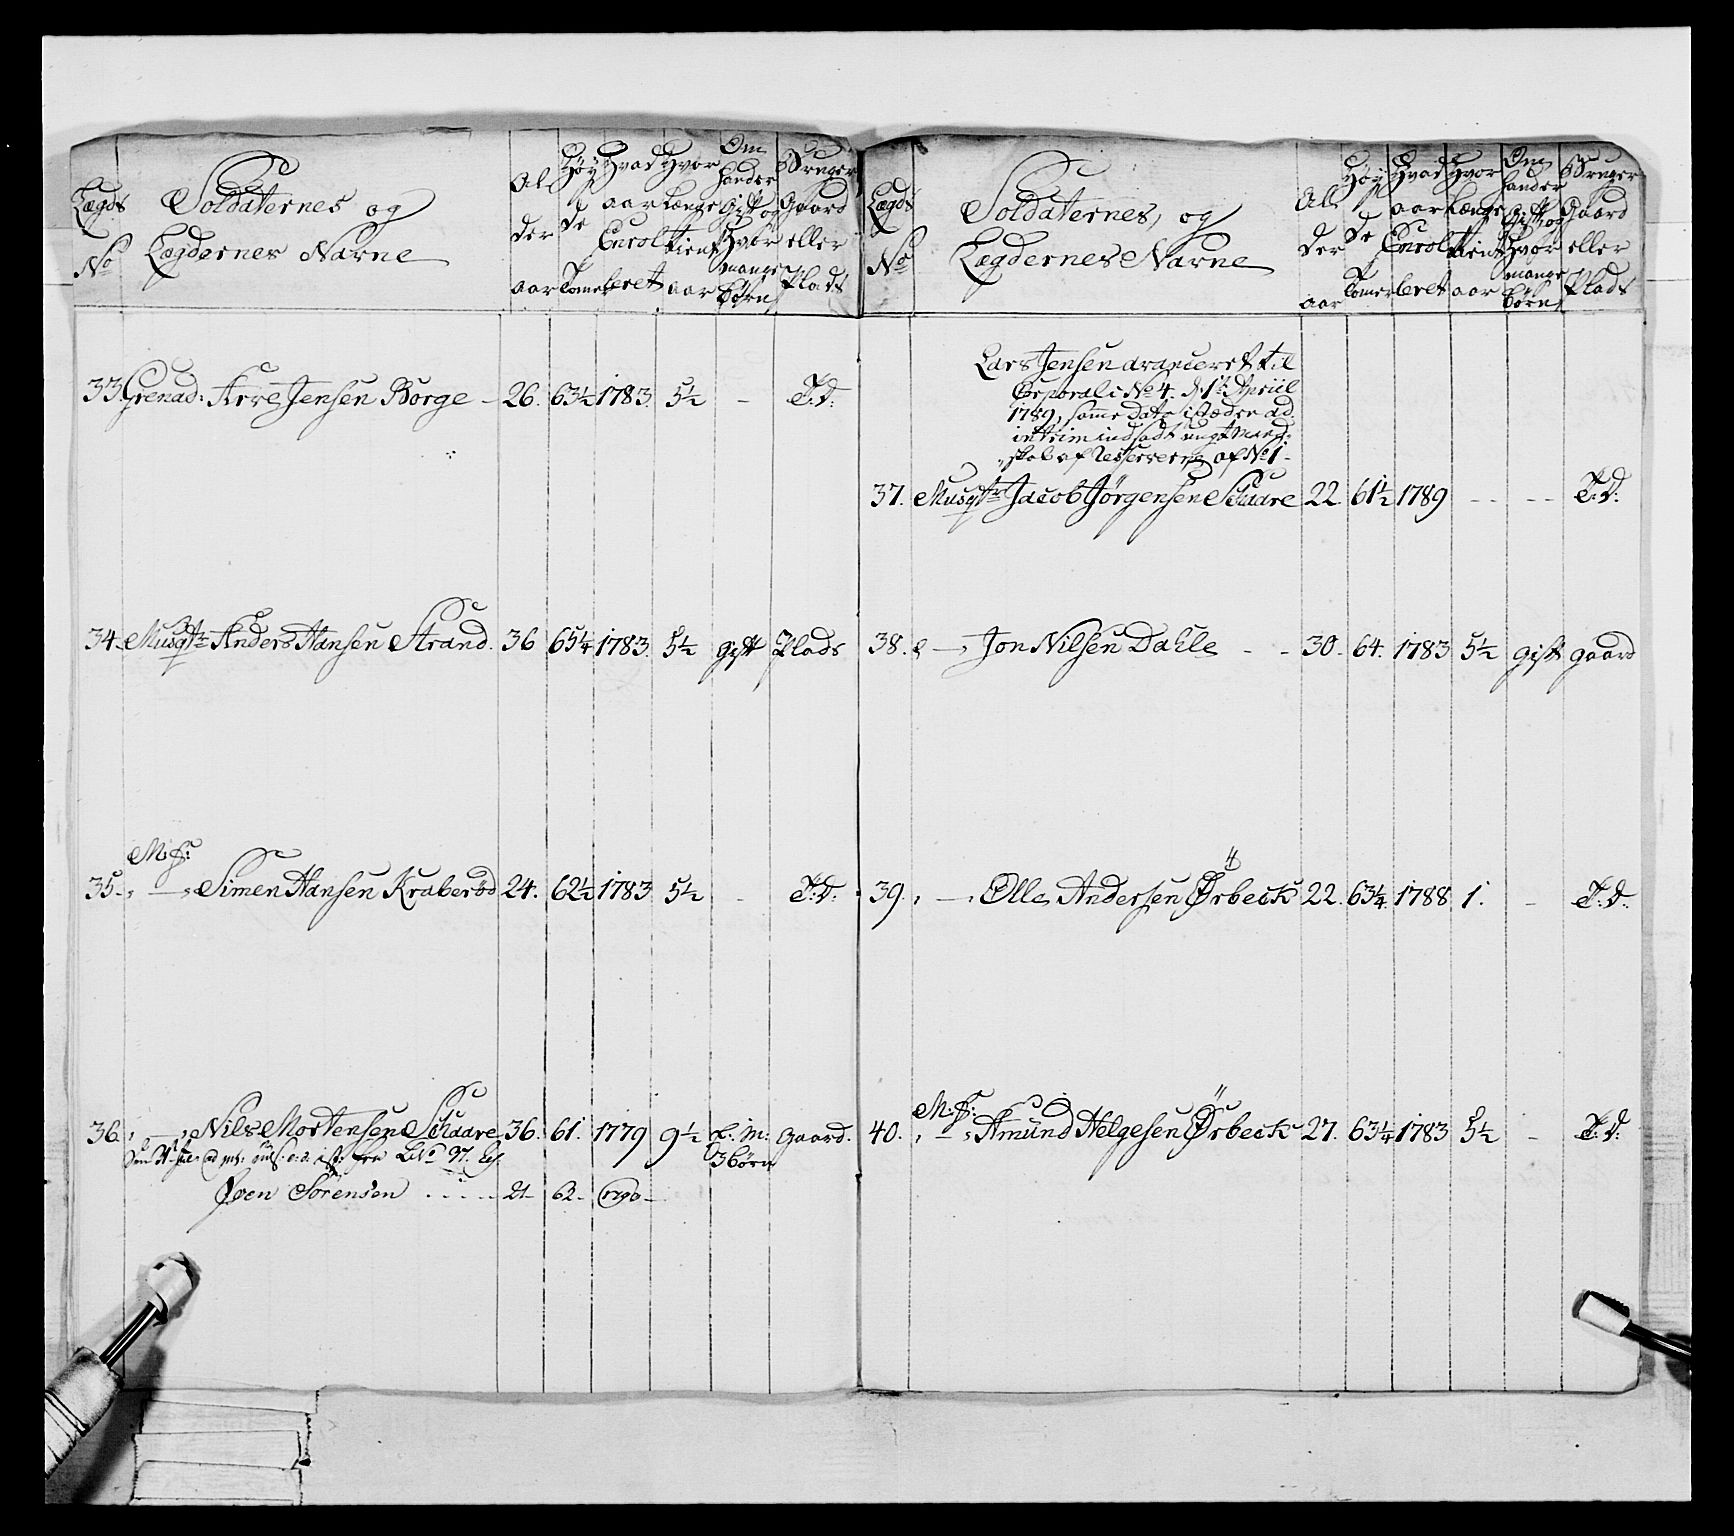 Lægds No
Soldaternes og Lægdernes Navne
Alder aar
Høyde Tomer
Hvad aar Enrolleret
Hvor Længe tient aar
Om hand er Gift og Hvor mange børn
Bruger Gaard eller Plads
33. Grenad: Arve Jensen Borge - 26. 63½ 1783. 5½ - T: D:
34. Musqtr Anders Hansen Strand. 36 65¼ 1783. 5½ gift Plads
M: S:
35. " — " Simen Hansen Kraberød 24. 62½ 1783 5½ - T: D:
36. " — " Nils Mortensen Schaare 36. 61. 1779 9½ E. M: 3 børn gaard.
Sven Sörensen 21 62 1790
Lægds No
Soldaternes, og Lægdernes Navne
Alder aar
Høyde Tomer
Hvad aar Enrolleret
Hvor Længe tient aar
Om hand er Gift, og Hvor mange børn
Bruger Gaard eller Plads
Lars Jensen avanceret til
Corporal i No 4. d: 1te Apriil
1789, samme dato istæden ad
interim indsadt ungt Mand-
skab af Reserven af No 1
37. Musqtr Jacob Jörgensen Schaare 22. 61½ 1789 - - - - T: D:
38. " — " Jon Nilsen Dahle - - 30. 64. 1783 5½ gift gaard
39. " — " Olle Andersen Ørbeck 22. 63¼ 1788 1. - T: D:
M: S:
40. " — " Amund Helgesen Ørbeck 27. 63¼ 1783 5½ - T: D: